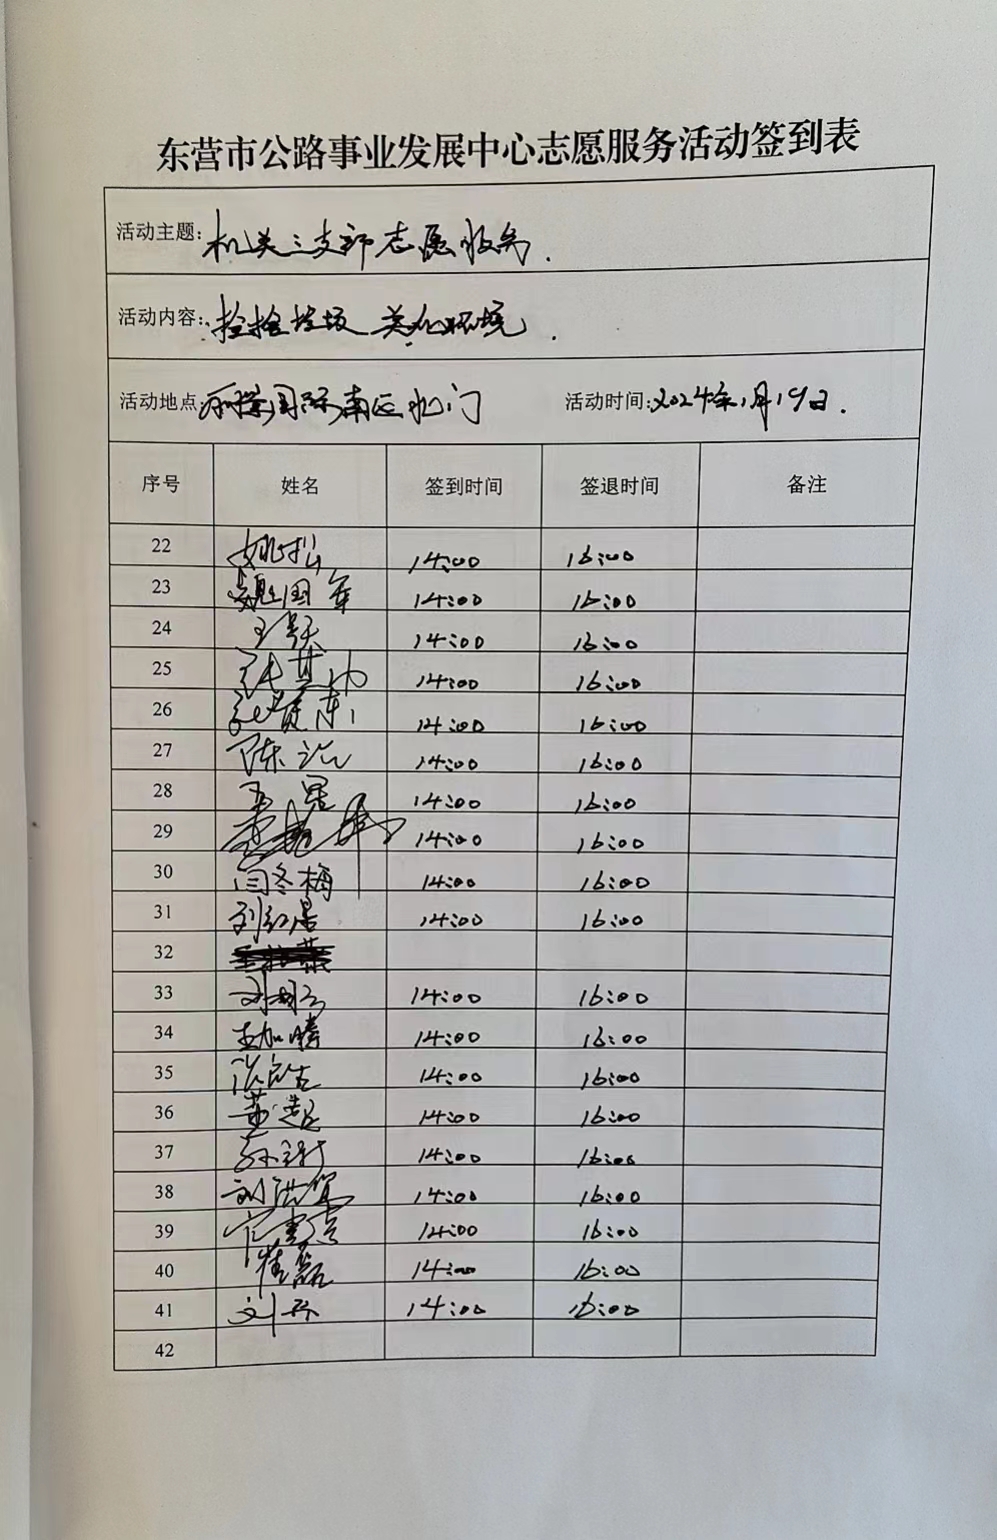 东营市公路事业发展中心志愿服务活动签到表
活动主题: 机关三支部志愿服务.
活动内容: 捡拾垃圾 美化环境.
活动地点: 国际南区北门 活动时间: 2024年1月19日.
序号 姓名 签到时间 签退时间 备注
22 姚松 14:00 16:00
23 魏国军 14:00 16:00
24 王 14:00 16:00
25 张其 14:00 16:00
26 14:00 16:00
27 陈 14:00 16:00
28 14:00 16:00
29 李 14:00 16:00
30 闫冬梅 14:00 16:00
31 刘红 14:00 16:00
32
33 刘 14:00 16:00
34 王加腾 14:00 16:00
35 14:00 16:00
36 董超 14:00 16:00
37 孙 14:00 16:00
38 刘洪 14:00 16:00
39 14:00 16:00
40 崔磊 14:00 16:00
41 刘 14:00 16:00
42